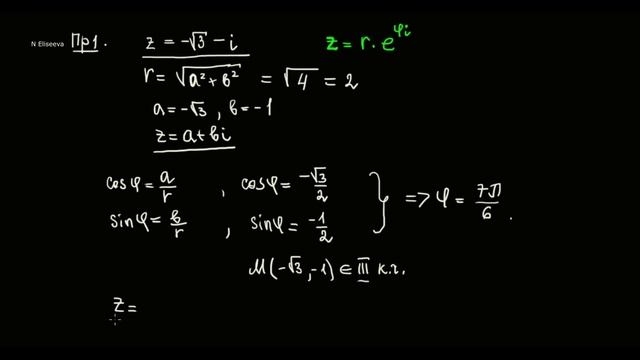 N Eliseeva
Пр1.
z = -√3 - i
z = r · e^{φi}
r = √(a² + b²) = √4 = 2
a = -√3 , b = -1
z = a + bi
cos φ = a/r , cos φ = -√3/2
sin φ = b/r , sin φ = -1/2
} => φ = 7π/6 .
M(-√3, -1) ∈ III к.ч.
z =